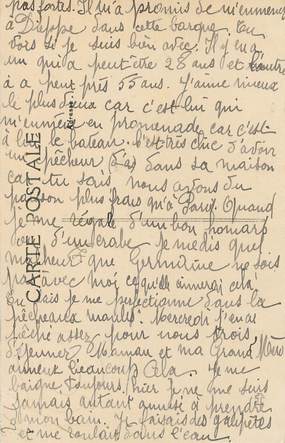 pas fortes. Il m'a promis de m'emmener
à Dieppe dans cette barque. Tu
vois si je suis bien avec. Il y en a
un qui a peut-être 28 ans et l'autre
à à peut près 55 ans. J'aime mieux
le plus vieux car c'est lui qui
m'emmène en promenade car c'est
à lui le bateau. C'est très chic d'avoir
un pêcheur dans sa maison
car tu sais nous avons du
poisson plus frais qu'à Paris. Quand
je me régale d'un bon homard
ou d'un crabe je me dis quel
malheur que Germaine ne sois
pas avec moi ce qu'elle aimerai cela!
Tu sais je me perfectionne dans la
pêche aux moules. Mercredi j'en ai
pêché assez pour nous trois
Maman et ma Grand'Mère
aiment beaucoup cela. Je me
baigne toujours, hier je ne me suis
jamais autant amusée à prendre
mon bain. Je faisais des galipettes
et me roulais dans l'eau.
CARTE POSTALE